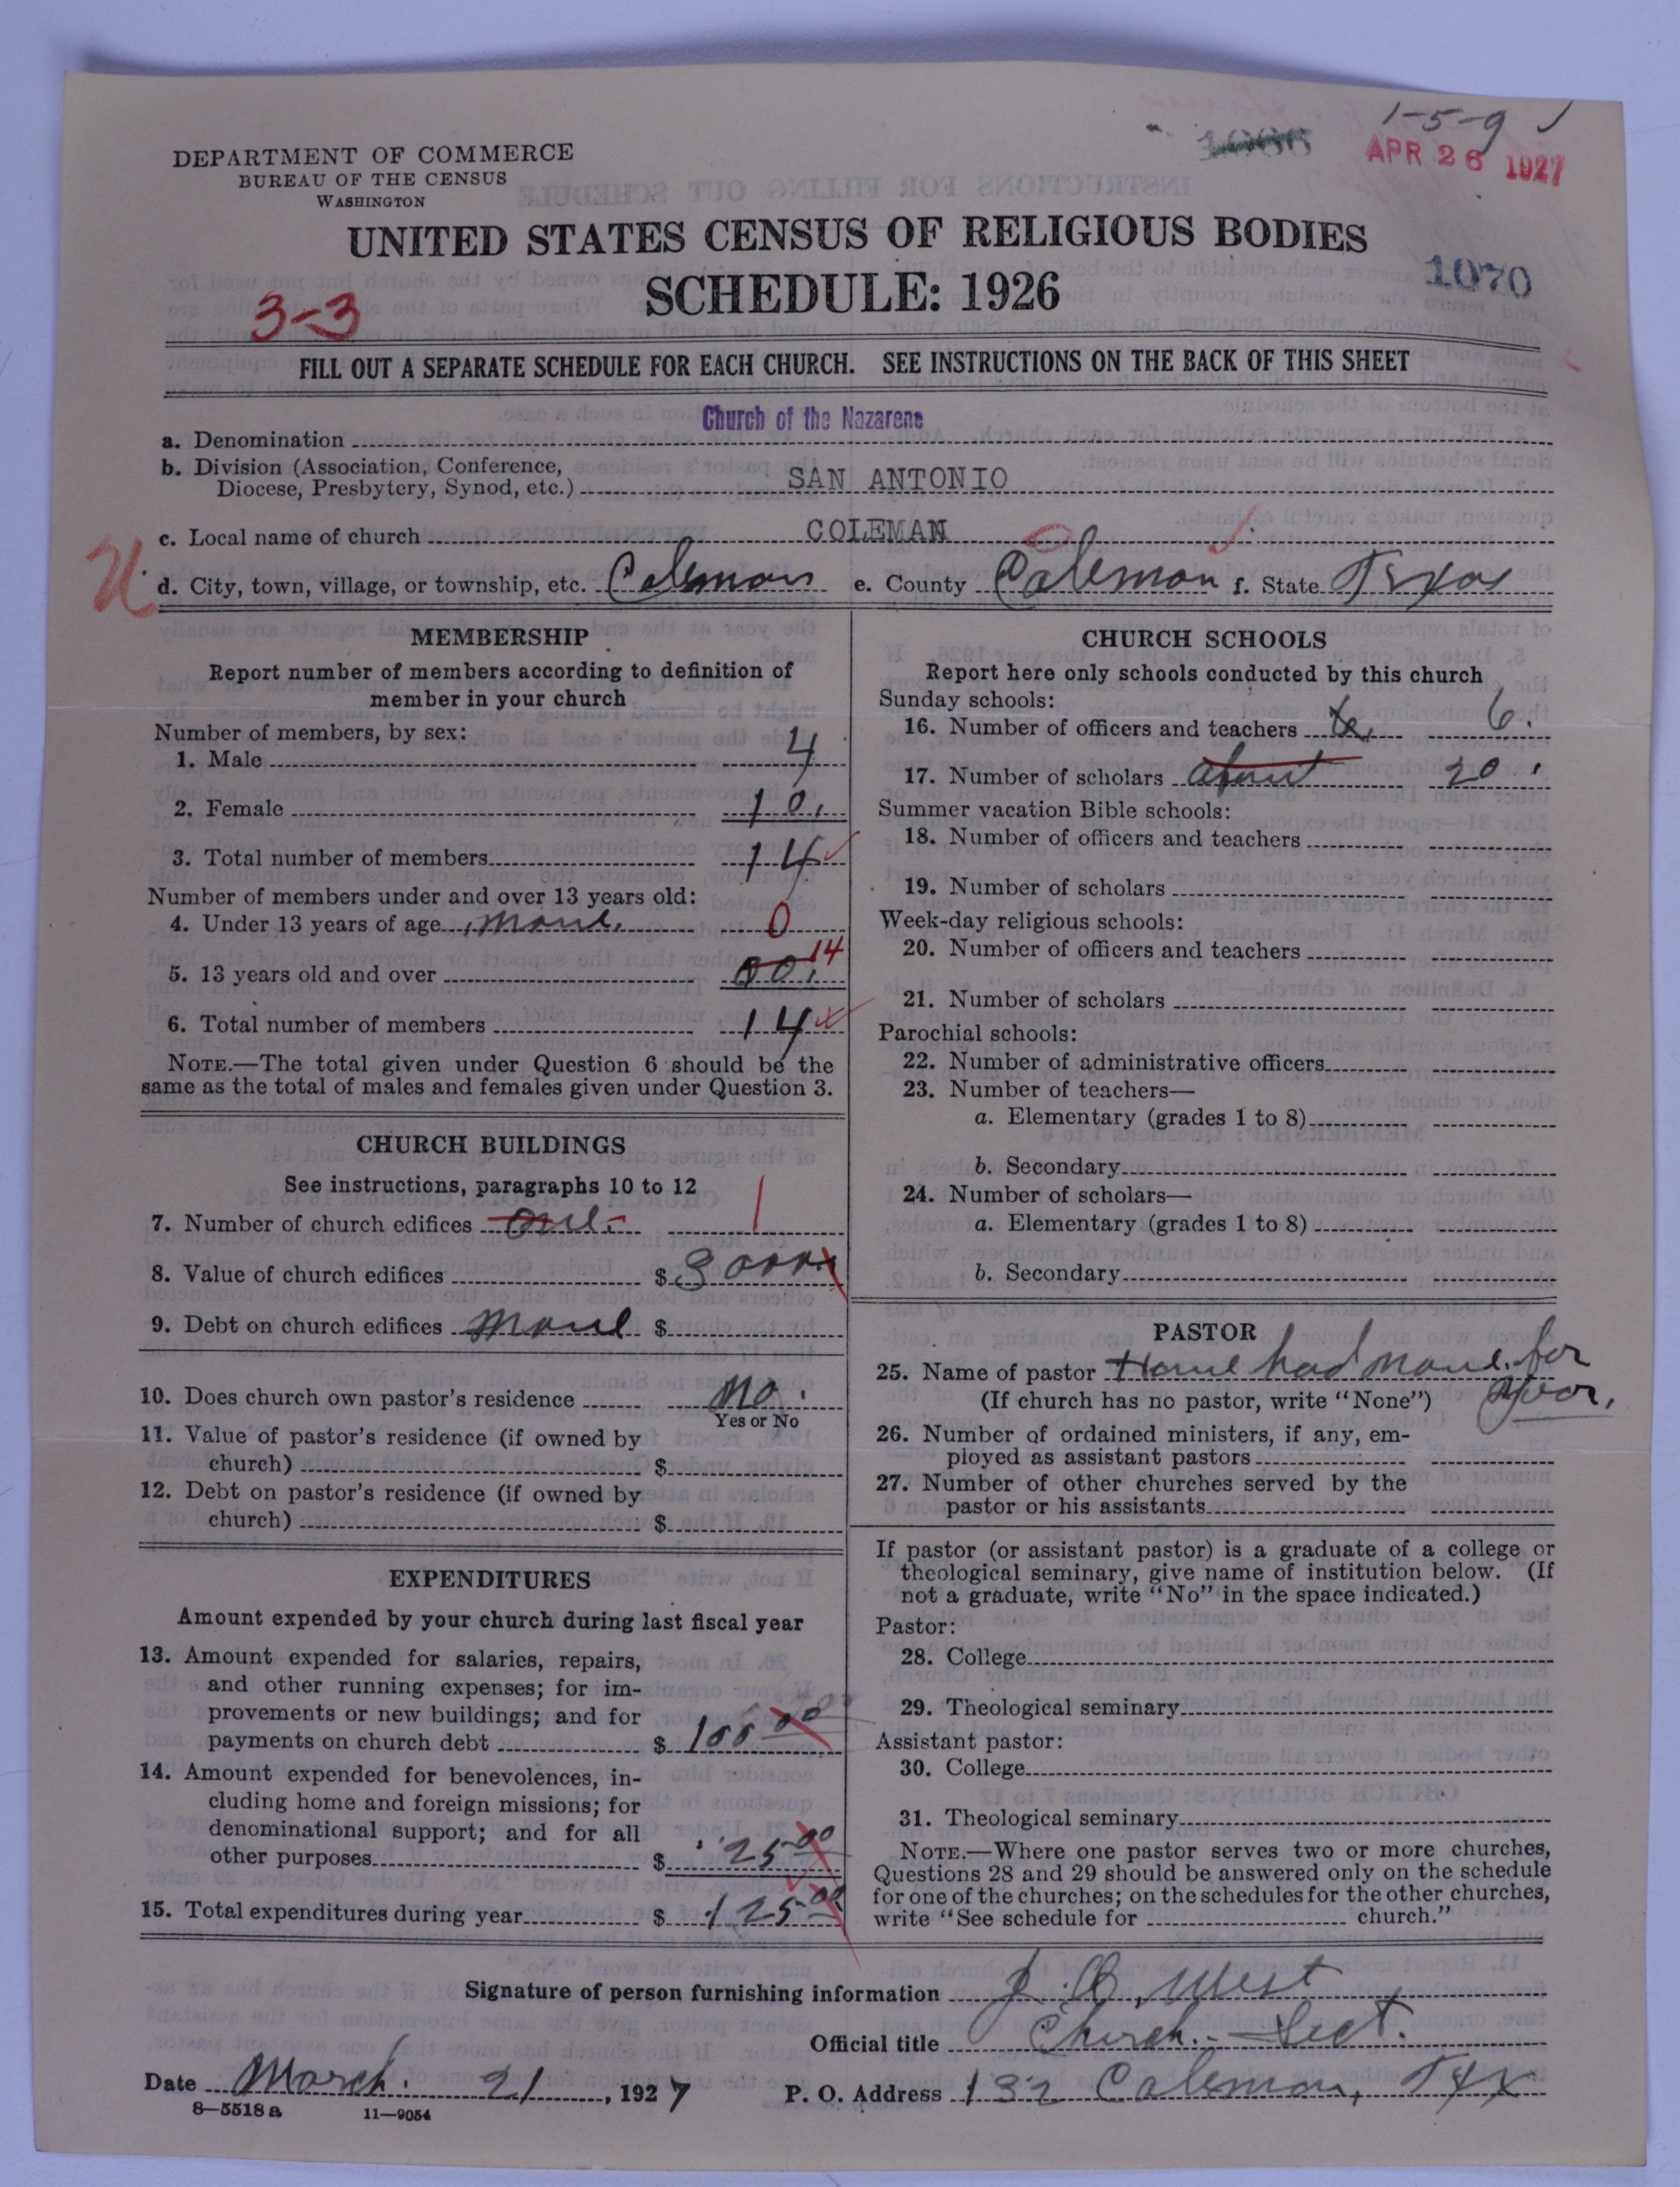 1-5-9
APR 26 1927
DEPARTMENT OF COMMERCE
BUREAU OF THE CENSUS
WASHINGTON
UNITED STATES CENSUS OF RELIGIOUS BODIES
SCHEDULE: 1926
1070
3-3
FILL OUT A SEPARATE SCHEDULE FOR EACH CHURCH. SEE INSTRUCTIONS ON THE BACK OF THIS SHEET
a. Denomination Church of the Nazarene
b. Division (Association, Conference,
Diocese, Presbytery, Synod, etc.) SAN ANTONIO
c. Local name of church COLEMAN
d. City, town, village, or township, etc. Coleman e. County Coleman f. State Texas
MEMBERSHIP
Report number of members according to definition of
member in your church
Number of members, by sex:
1. Male 4
2. Female 10.
3. Total number of members 14
Number of members under and over 13 years old:
4. Under 13 years of age none. 0
5. 13 years old and over 00. 14
6. Total number of members 14
NOTE.—The total given under Question 6 should be the
same as the total of males and females given under Question 3.
CHURCH BUILDINGS
See instructions, paragraphs 10 to 12
7. Number of church edifices one. 1
8. Value of church edifices $ 3000
9. Debt on church edifices none $
10. Does church own pastor's residence No.
Yes or No
11. Value of pastor's residence (if owned by
church) $
12. Debt on pastor's residence (if owned by
church) $
EXPENDITURES
Amount expended by your church during last fiscal year
13. Amount expended for salaries, repairs,
and other running expenses; for im-
provements or new buildings; and for
payments on church debt $ 100 00
14. Amount expended for benevolences, in-
cluding home and foreign missions; for
denominational support; and for all
other purposes $ 25 00
15. Total expenditures during year $ 125 00
CHURCH SCHOOLS
Report here only schools conducted by this church
Sunday schools:
16. Number of officers and teachers 6.
17. Number of scholars about 20.
Summer vacation Bible schools:
18. Number of officers and teachers
19. Number of scholars
Week-day religious schools:
20. Number of officers and teachers
21. Number of scholars
Parochial schools:
22. Number of administrative officers
23. Number of teachers—
a. Elementary (grades 1 to 8)
b. Secondary
24. Number of scholars—
a. Elementary (grades 1 to 8)
b. Secondary
PASTOR
25. Name of pastor Have had none for
(If church has no pastor, write "None") year.
26. Number of ordained ministers, if any, em-
ployed as assistant pastors
27. Number of other churches served by the
pastor or his assistants
If pastor (or assistant pastor) is a graduate of a college or
theological seminary, give name of institution below. (If
not a graduate, write "No" in the space indicated.)
Pastor:
28. College
29. Theological seminary
Assistant pastor:
30. College
31. Theological seminary
NOTE.—Where one pastor serves two or more churches,
Questions 28 and 29 should be answered only on the schedule
for one of the churches; on the schedules for the other churches,
write "See schedule for church."
Signature of person furnishing information J. B. West
Official title Church.- Sect.
Date March. 21, 1927 P. O. Address 132 Coleman, Tex
8—5518a 11—9054